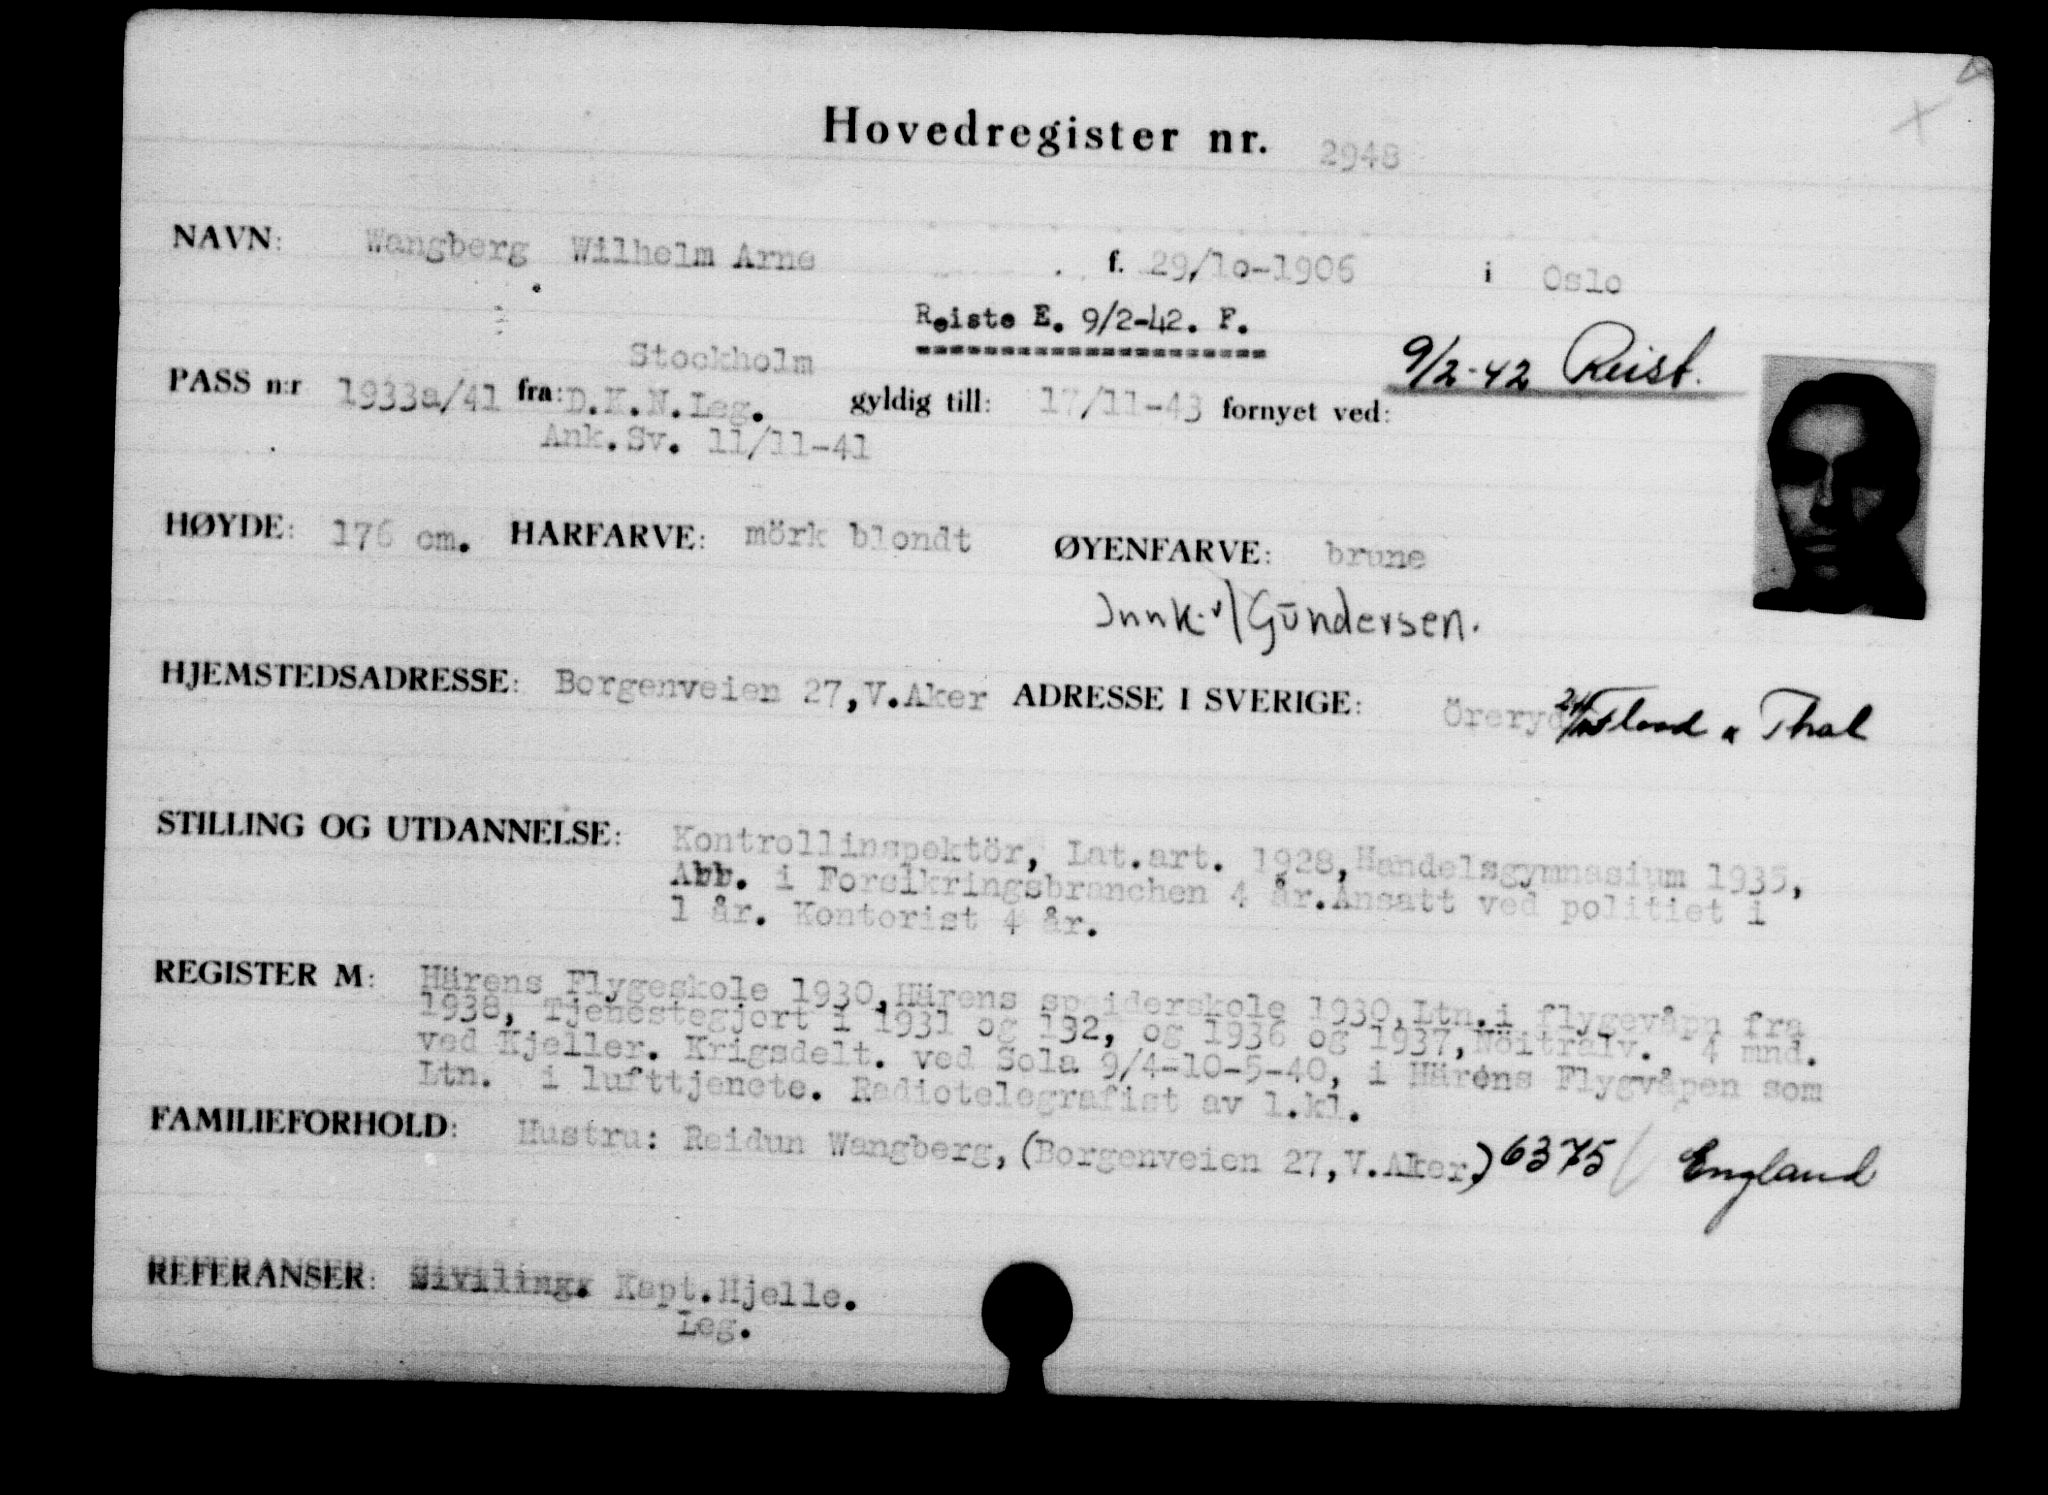 Hovedregister nr. 2948
NAVN: Wangberg Wilhelm Arne f. 29/10-1906 i Oslo
Reiste E. 9/2-42. F.
9/2-42 Reist.
Stockholm
PASS n:r 1933a/41 fra: D.K.N.Leg. gyldig till: 17/11-43 fornyet ved:
Ank.Sv. 11/11-41
HØYDE: 176 cm. HARFARVE: mörk blondt ØYENFARVE: brune
Innk. v/ Gundersen.
HJEMSTEDSADRESSE: Borgenveien 27, V.Aker ADRESSE I SVERIGE: Öreryd Thal
STILLING OG UTDANNELSE: Kontrollinspektör, Lat.art. 1928, Handelsgymnasium 1935,
Abb. i Forsikringsbranchen 4 år. Ansatt ved politiet i
1 år. Kontorist 4 år.
REGISTER M: Härens Flygeskole 1930, Härens speiderskole 1930, Ltn.i flygevåpn fra
1938, Tjenestegjort i 1931 og 192, og 1936 og 1937, Nöitralv. 4 mnd.
ved Kjeller. Krigsdelt. ved Sola 9/4-10-5-40, i Härens Flygvåpen som
Ltn. i lufttjenete. Radiotelegrafist av 1.kl.
FAMILIEFORHOLD: Hustru: Reidun Wangberg, (Borgenveien 27, V.Aker.) 6375 / England
REFERANSER: Siviling. Kapt.Hjelle.
Leg.